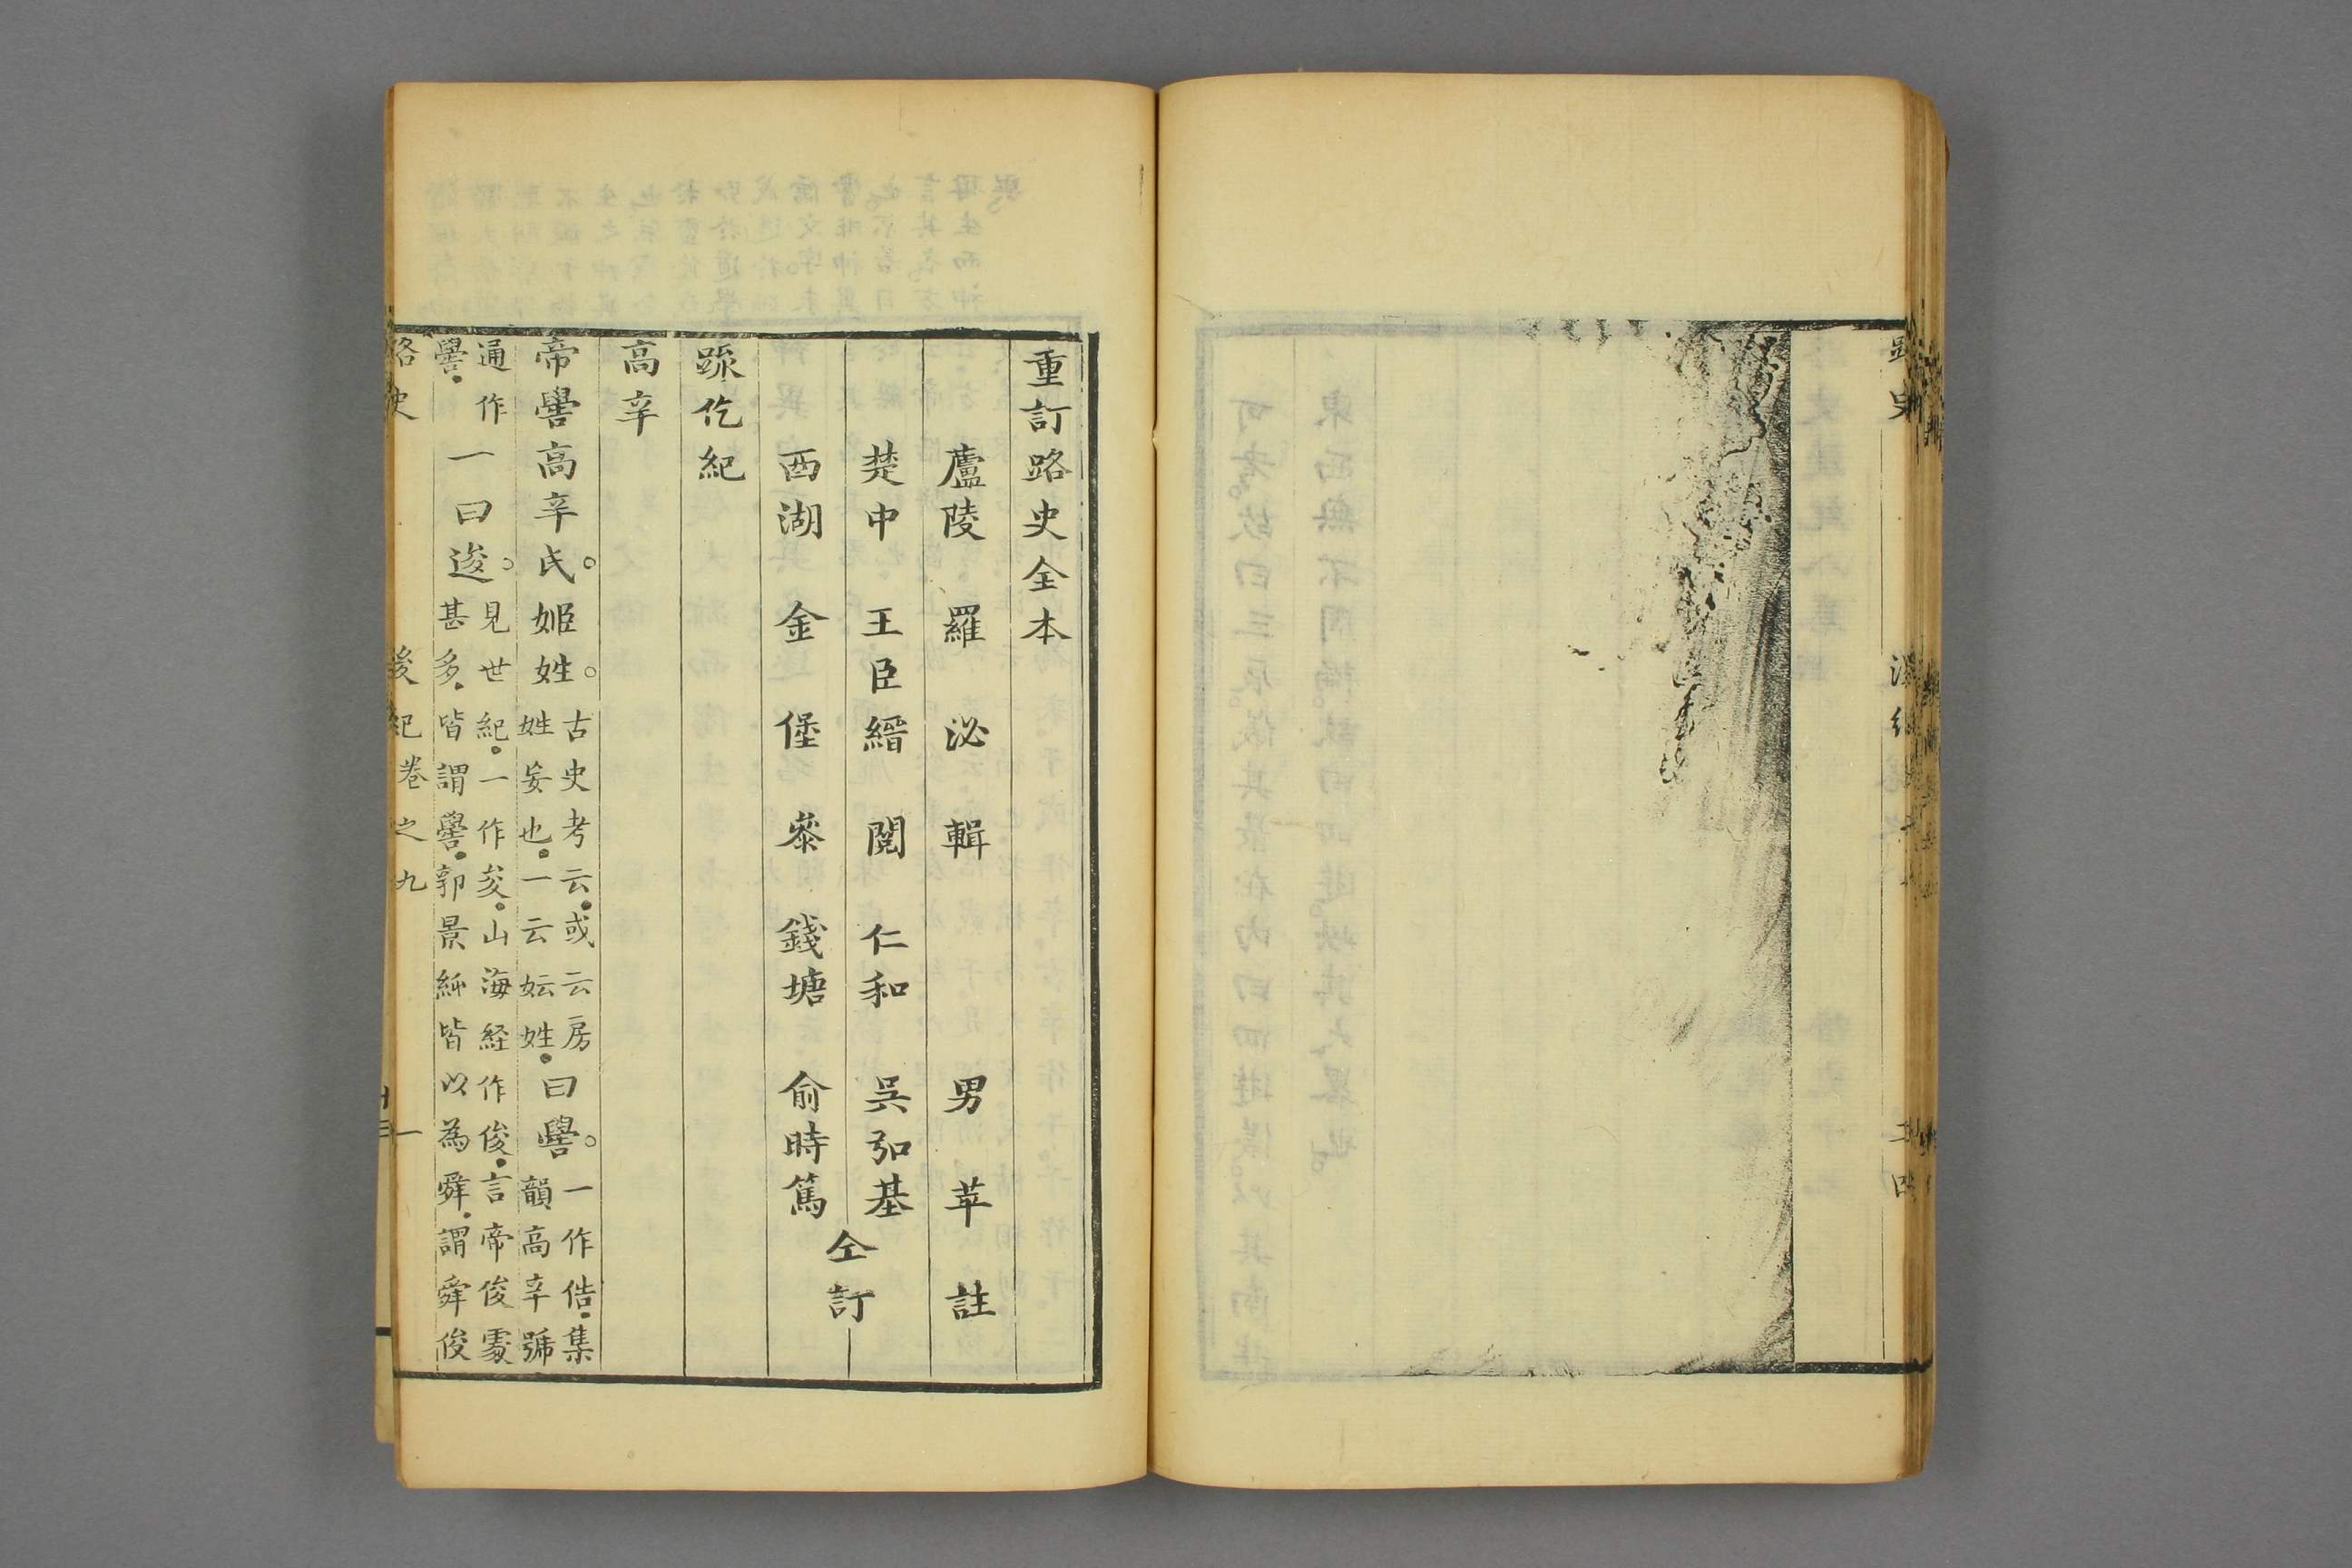 重訂路史全本
廬陵 羅泌 輯 男 苹 註
楚中 王臣縉 閱 仁和 吳弘基
西湖 金堡 叅 錢塘 俞時篤
仝訂
䟽仡紀
高辛
帝嚳高辛氏。姬姓。
古史考云或云房
姓妄也一云妘姓
曰嚳。
一作俈集
韻高辛號
通作
嚳
一曰逡。
見世紀一作夋山海経作俊言帝俊䖏
甚多皆謂嚳郭景純皆以為舜謂舜俊
路史 後紀卷之九 一